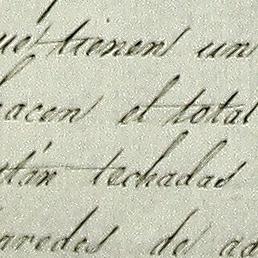 que tienen un
hacen el total
están techadas
paredes de ad